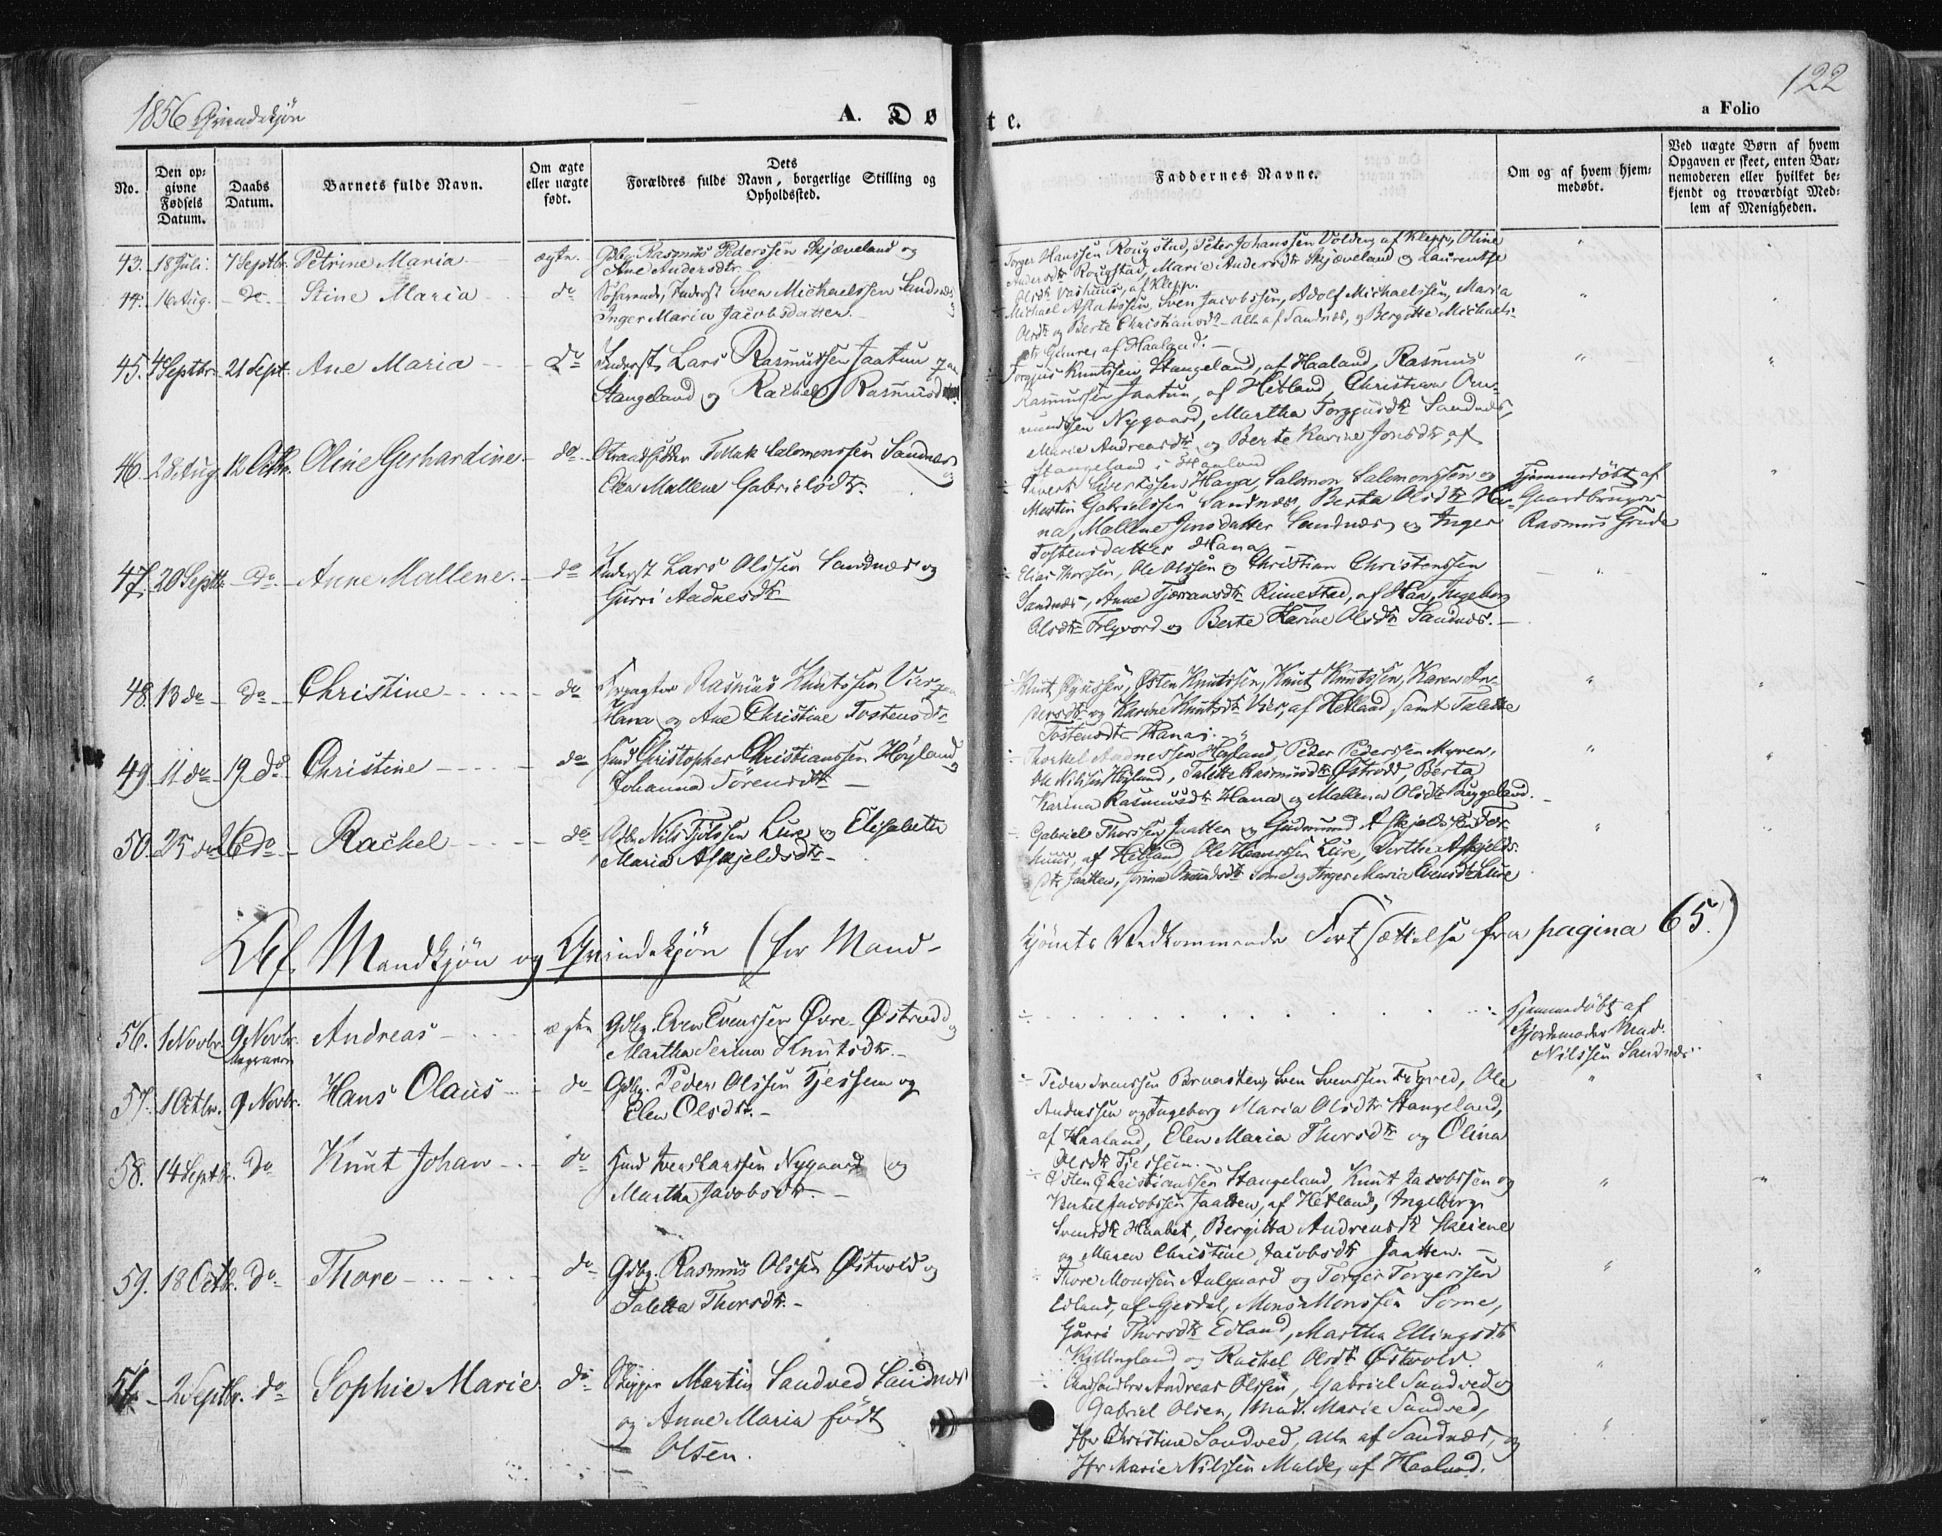 1856 Qvindekjön
A. Døbte.
122
a Folio
No.
Den opgivne Fødsels Datum.
Daabs Datum.
Barnets fulde Navn.
Om ægte eller uægte født.
Dets Forældres fulde Navn, borgerlige Stilling og Opholdssted.
Faddernes Navne.
Om og af hvem hjemmedøbt.
Ved uægte Børn af hvem Opgaven er skeet, enten Barnemoderen eller hvilket bekjendt og troværdigt Medlem af Menigheden.
43. 18 Juli. 7 Septbr. Petrine Maria ægte. Gdbg. Rasmus Pederssen Skjæveland og
Ane Andersdtr.
Torger Hanssen Rougstad, Peter Johanssen Volden, af Klepp, Oline
Andersdtr Rougstad, Marie Andersdtr Skjæveland og Laurentse
Olsdtr Vashuus, af Klepp.
44. 16 Aug. do Stine Maria do Søfarende, Inderst Sven Michaelssen Sandnes og
Inger Maria Jacobsdatter.
Michael Aslakssen, Sven Jacobssen, Adolf Michaelssen, Maria
Olsdtr og Berte Christiansdtr alle af Sandnes, og Bergitte Michaels-
dtr Gimre, af Haaland.
45. 4 Septbr. 21 Sept. Ane Maria do Inderst Lars Rasmussen Jaatun paa
Stangeland og Rachel Rasmusd
Torgius Knutssen Stangeland, af Haaland, Rasmus
Rasmussen Jaatun, af Hetland, Christian Om-
mundssen Nygaard, Martha Torggusdtr Sandnes,
Marie Andreasdtr og Berte Karine Jonsdtr, af
Stangeland i Haaland
46. 28 Aug. 12 Octbr. Oline Gerhardine do Strandsidder Tollak Salomonssen Sandnes og
Elen Mallene Gabrielsdtr.
Sivert Sivertssen Hana, Salomon Salomonssen og
Martin Gabrielssen Sandnes, Berta Olsdtr Ha-
na, Mallene Jonsdatter Sandnes og Inger
Tostensdatter Hana
Hjemmedøbt af
Gaardbruger
Rasmus Grude
47. 20 Septbr. do Anne Mallene. do Inderst Lars Olssen Sandnes og
Gurri Aadnesdtr
Elias Thorssen, Ole Olssen og Christian Christenssen
Sandnes, Anne Tjerransdtr Rimestad, af Haa, Ingeborg
Olsdtr Folgvord og Berte Karine Olsdtr Sandnes.
48. 13 do do Christine do Forpagter Rasmus Knutssen Vier paa
Hana og Ane Christine Tostensdtr
Knut, Østen Knutssen, Knut Knutssen, Karen An-
dersdtr og Karine Knutsdtr Vier, af Hetland samt Talette
Tostensdtr Hana
49. 11 do 19 do Christine do Husmd Christopher Christianssen Höyland og
Johanna Sörensdtr
Thorkel Aadnessen Høyland, Peder Pederssen Myren,
Ole Nilssen Høyland, Talette Rasmusdtr Østrodd, Berta
Karina Rasmusdtr Hana og Mallena Olsdtr Bryggeland.
50. 25 do 26 do Rachel do Gdbr. Nils Lure og Elisabeth
Maria Askjeldsdtr
Gabriel Thorssen Jaatten og Gudmund Askjeldssen
af Hetland, Ole Hanssen Lure, Berthe Askjelds-
dtr Jaatten, Some og Inger Maria Evensdtr Lure
Af Mandkjön og Qvindekjön (for Mand-
kjönets Vedkommende Fortsættelse fra pagina 65.)
56. 1 Novbr. 9 Novbr. Andreas ægte Gdbg. Even Evenssen Øvre-Østrodd og
Martha Serina Knutsdtr.
Hjemmedøbt af
Gjordmoder Mad.
Nilssen Sandnes
57. 1 Octbr. 9 Novbr. Hans Olaus do Gdbg. Peder Olssen Tjessem og
Elen Olsdtr.
Peder Svenssen Bruasten, Sven Svenssen, Ole
Anderssen og Ingeborg Maria Olsdtr Stangeland,
af Haaland, Elen Maria Thorsdtr og Olina
Olsdtr Tjessem.
58. 14 Septbr. do Knut Johan do Husmd Iver Larssen Nygaard og
Martha Jacobsdtr.
Østen Christianssen Stangeland, Knut Jacobssen og
Kittel Jacobssen Jaatten, af Hetland, Ingeborg
Svensdtr Haabet, Bergitta Andreasdtr
og Maren Christine Jacobsdtr Jaatten.
59. 18 Octbr. do Thore do Gdbg. Rasmus Olssen Østvold og
Taletta Thorsdtr.
Thore Monssen Aalgaard og Torger Torgerssen
Edland, af Gjesdal, Mons Monssen Some,
Gurri Thorsdtr Edland, Martha Ellingsdtr
Kyllingland og Rachel Olsdtr Østvold.
51. 2 Septbr. do Sophie Marie do Skipper Martin Sandved Sandnes
og Anne Maria født
Olsen.
Andreas Olssen, Gabriel Sandved og
Gabriel Olsen, Mad. Marie Sandved,
Jfr Christine Sandved, alle af Sandnes, og
Jfr Marie Nilssen Malde, af Haaland.